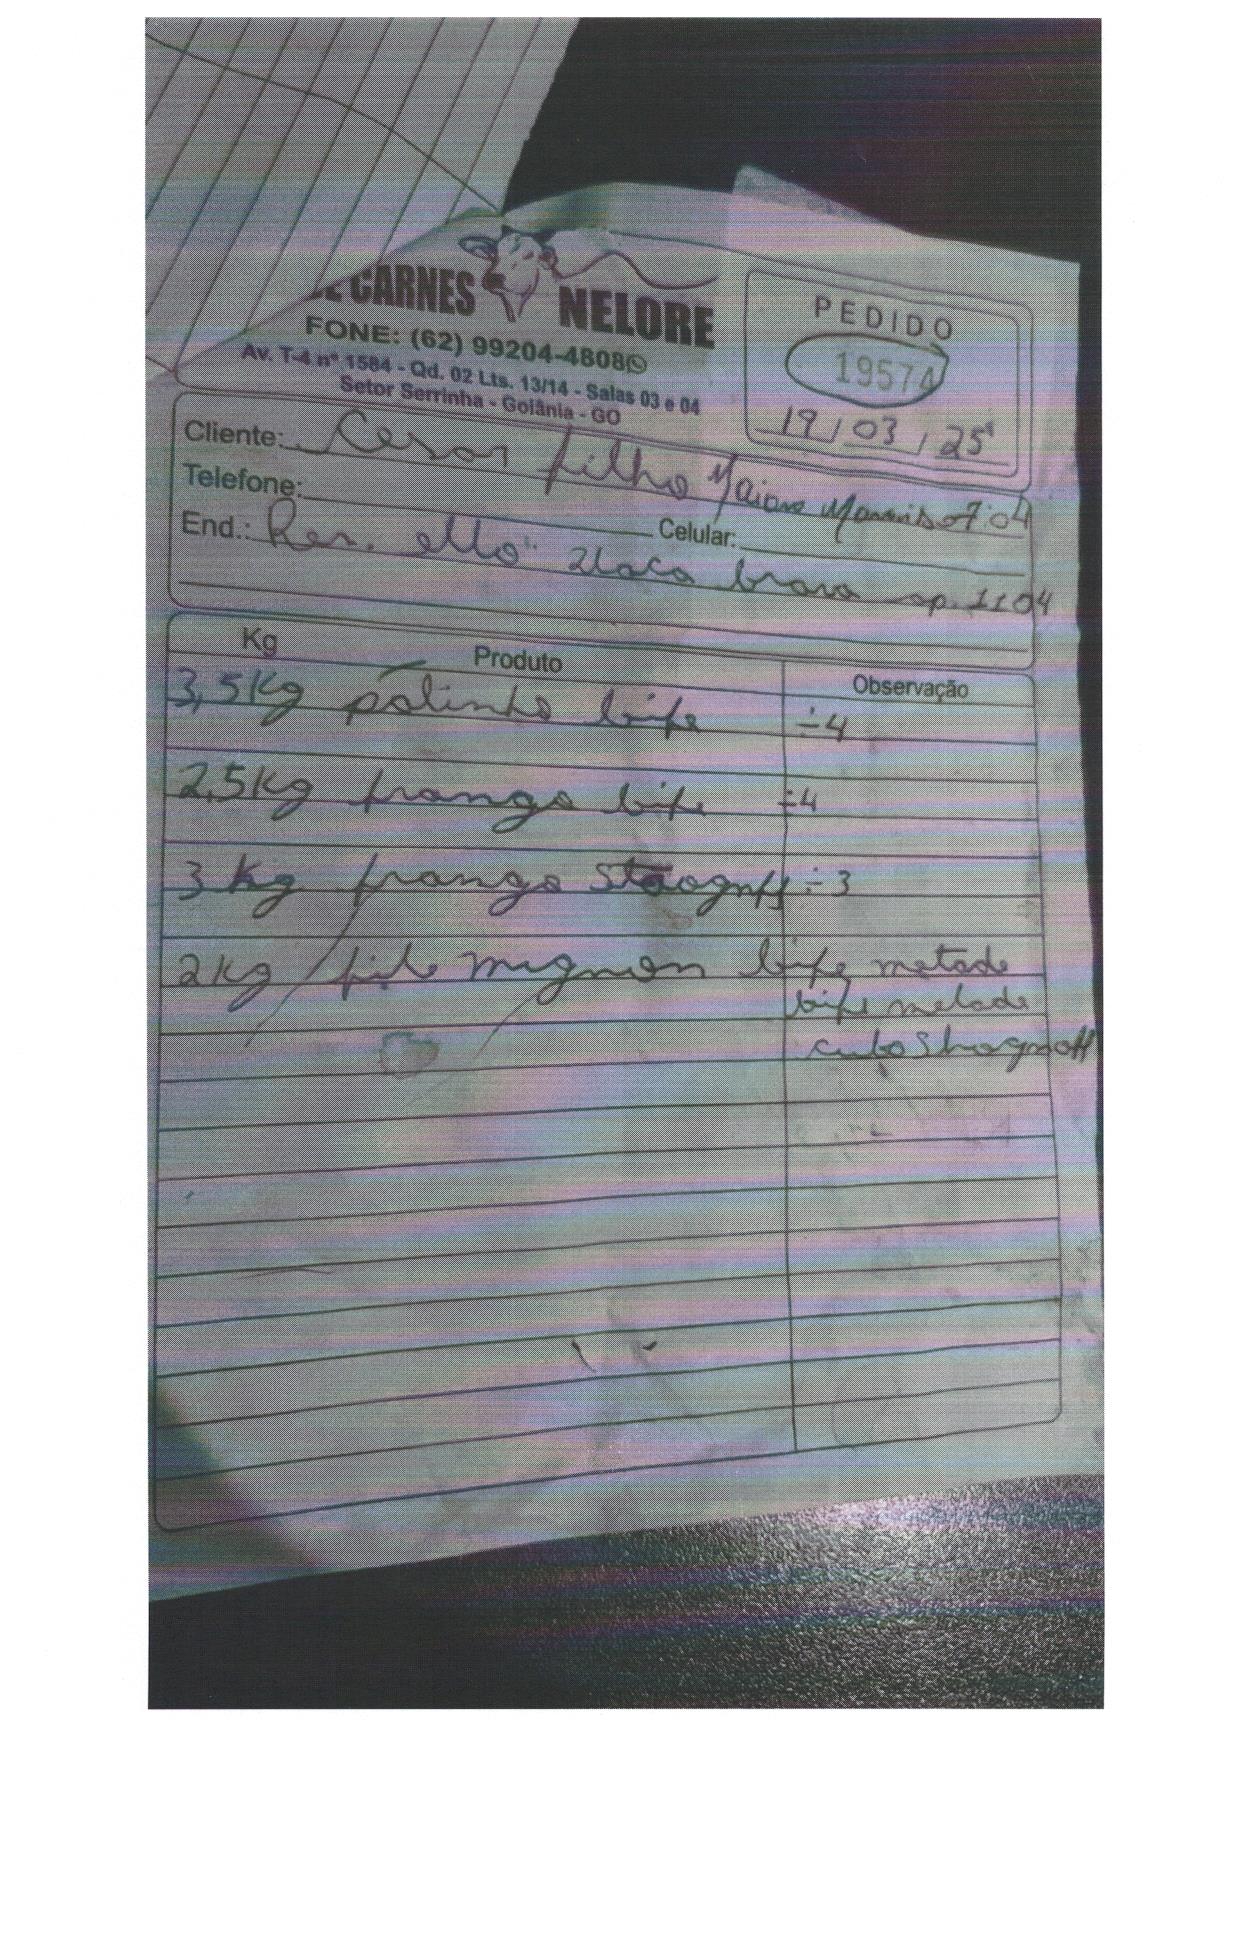 CARNES NELORE
FONE: (62) 99204-4808
Av. T-4 nº 1584 - Qd. 02 Lts. 13/14 - Salas 03 e 04
Setor Serrinha - Goiânia - GO
PEDIDO
19574
19/03/25
Cliente: Cesar filho
Telefone: Celular:
End.: Res. ello ap. 1104
Kg Produto Observação
3,5Kg patinho bife ÷4
2,5Kg frango bife ÷4
3 kg frango ÷3
2kg file mignon bife metade
bife metade